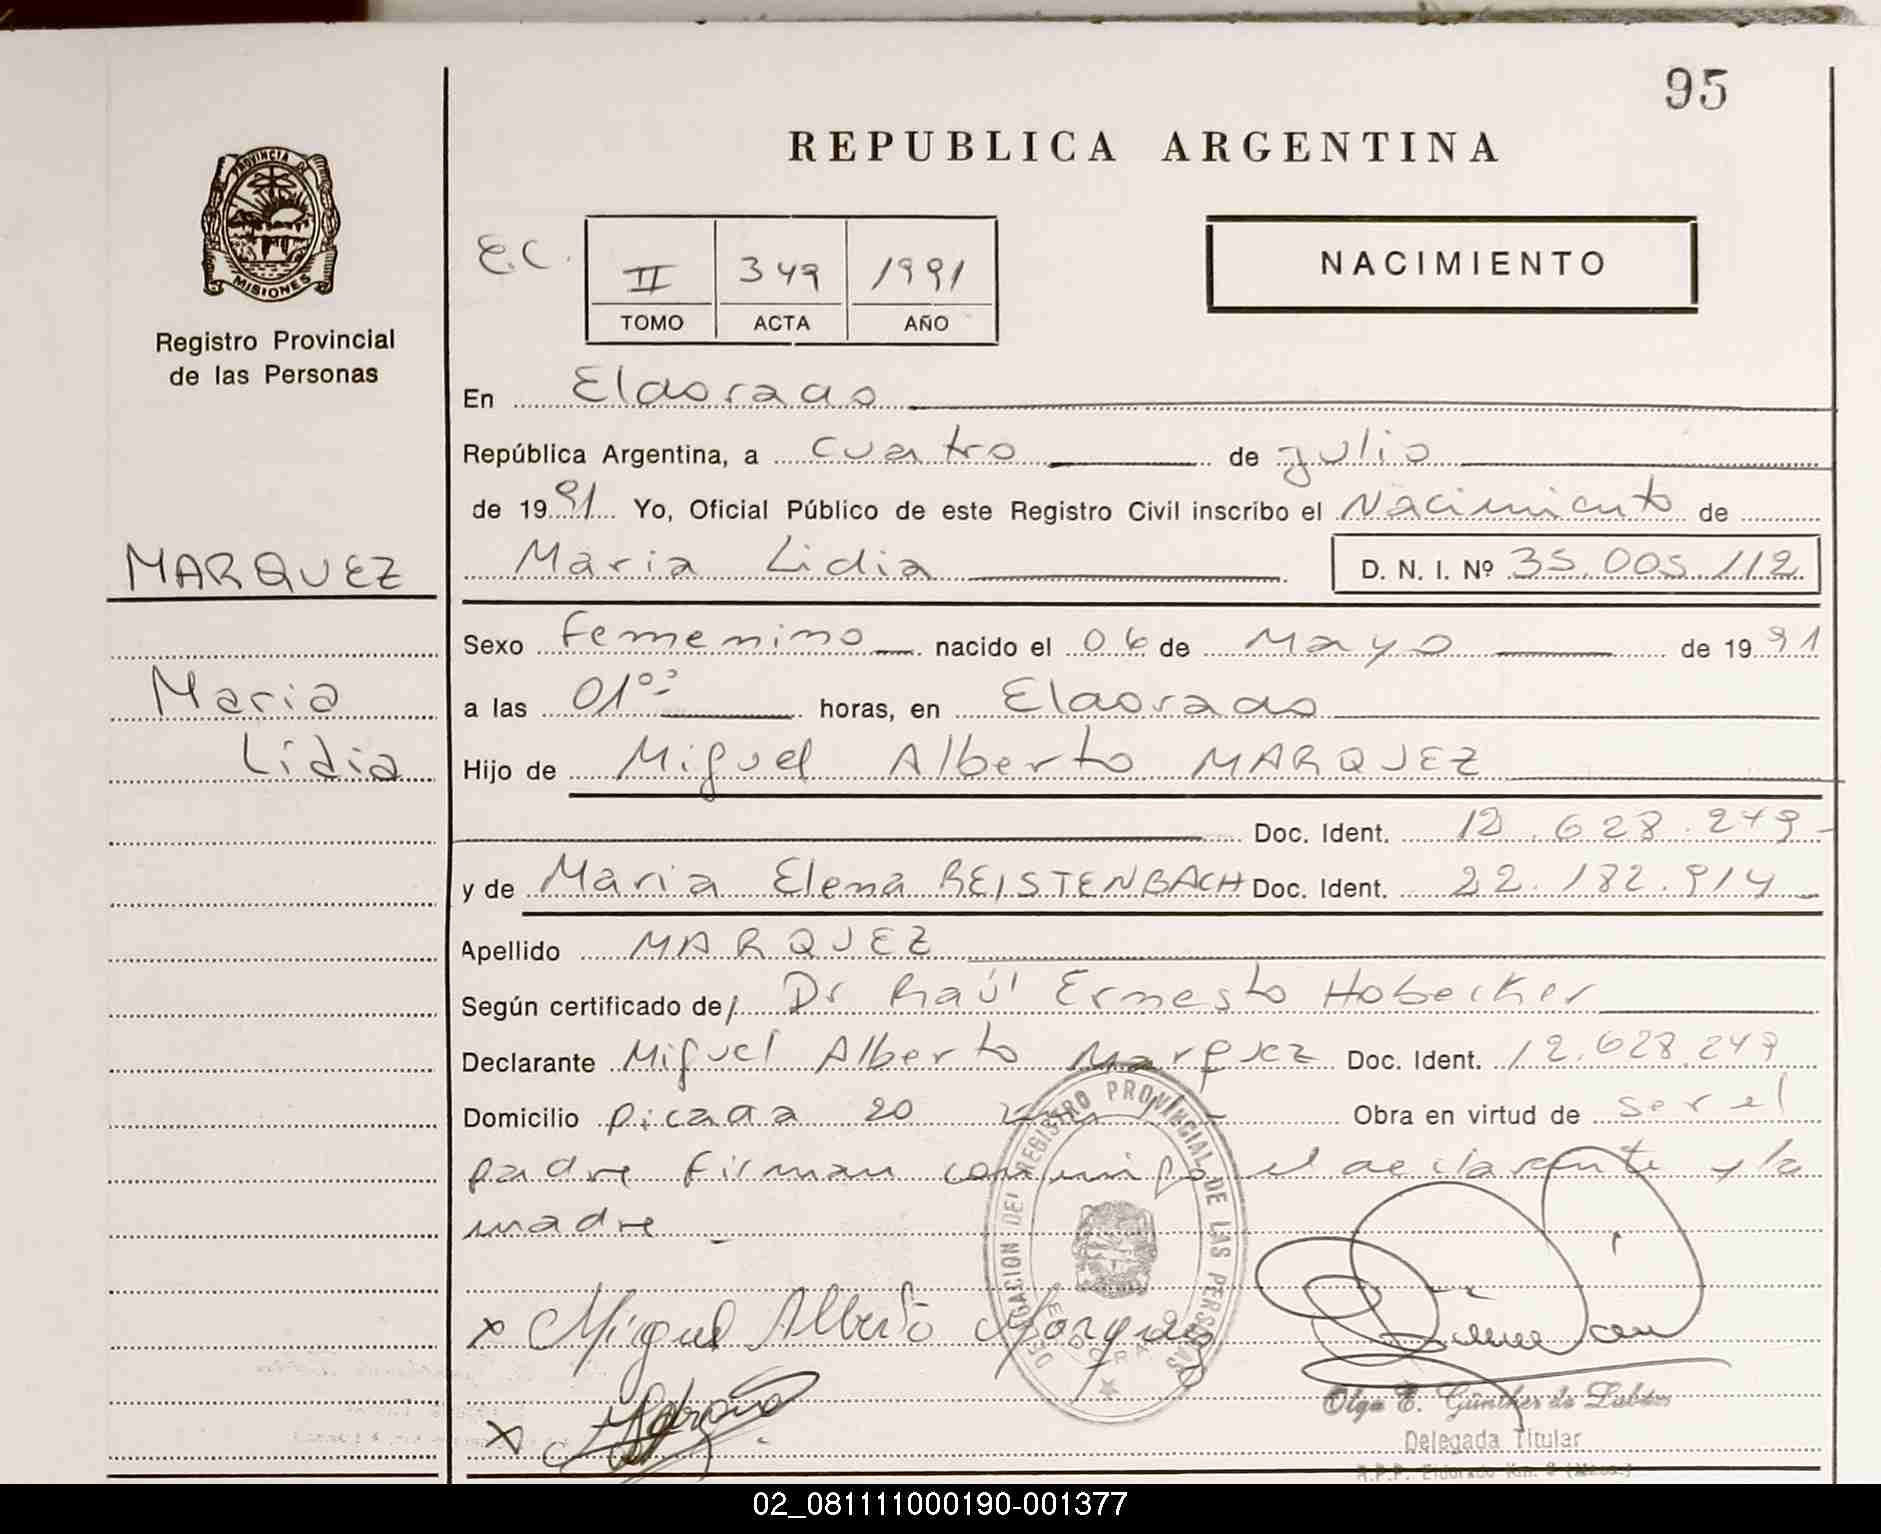 95
REPUBLICA ARGENTINA
PROVINCIA DE
MISIONES
Registro Provincial
de las Personas
E.C.
II 349 1991
TOMO ACTA AÑO
NACIMIENTO
En Eldorado
República Argentina, a cuatro de julio
de 1991 Yo, Oficial Público de este Registro Civil inscribo el Nacimiento de
MARQUEZ
Maria Lidia D. N. I. Nº 35.005.112
Sexo femenino nacido el 06 de Mayo de 1991
Maria
a las 01⁰⁰ horas, en Eldorado
Lidia
Hijo de Miguel Alberto MARQUEZ
Doc. Ident. 12.628.249
y de Maria Elena REISTENBACH Doc. Ident. 22.182.914
Apellido MARQUEZ
Según certificado de/ Dr Raúl Ernesto Hobecker
Declarante Miguel Alberto Marquez Doc. Ident. 12.628.249
Domicilio Picada 20 Obra en virtud de ser el
padre firman conmigo el declarante y la
madre
DELEGACION DEL REGISTRO PROVINCIAL DE LAS PERSONAS
ELDORADO
x Miguel Alberto Marquez
x
Olga E. Günther de
Delegada Titular
R.P.P. Eldorado Km. 9 (Mnes.)
02_081111000190-001377